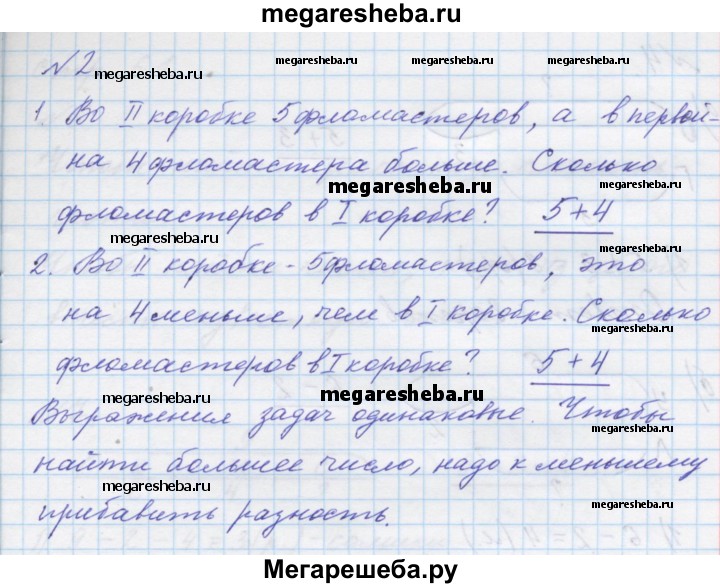 megaresheba.ru
№2
megaresheba.ru
1. Во II коробке 5 фломастеров, а в первой-
megaresheba.ru
на 4 фломастера больше. Сколько
megaresheba.ru
megaresheba.ru
фломастеров в I коробке? 5+4
megaresheba.ru
2. Во II коробке - 5 фломастеров, это
на 4 меньше, чем в I коробке. Сколько
megaresheba.ru
megaresheba.ru
фломастеров в I коробке? 5+4
megaresheba.ru
Выражения задач одинаковые. Чтобы
megaresheba.ru
найти большее число, надо к меньшему
megaresheba.ru
прибавить разность.
megaresheba.ru
Мегарешеба.ру